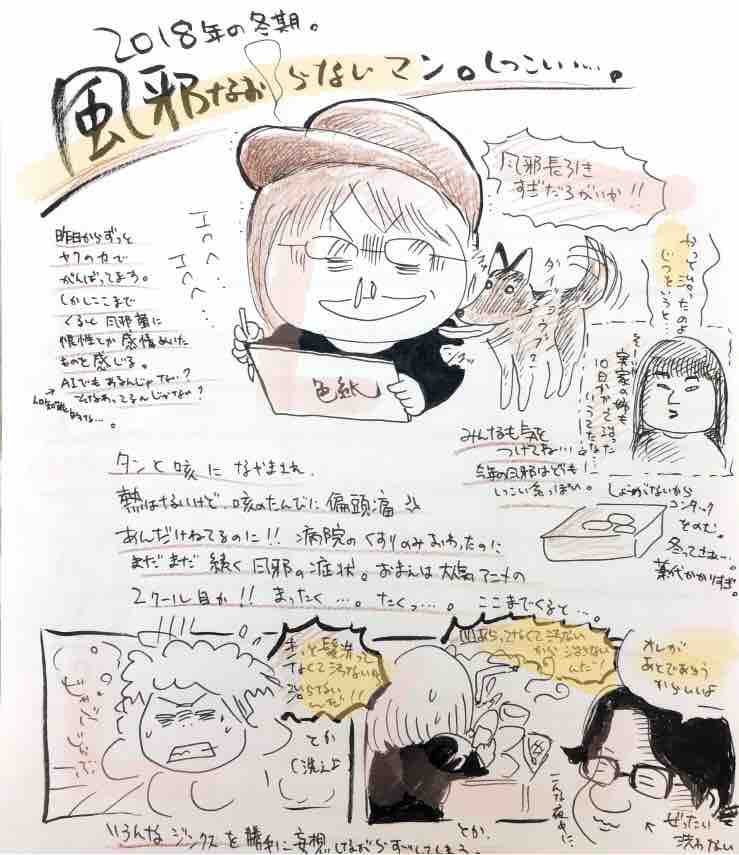 2018年の冬期。
風邪なおらないマン。しつこい…。
風邪長引き
すぎだろがいか!!
昨日からずっと
ヤクの力で
がんばってます。
しかしここまで
くると風邪菌に
根性とか感情めいた
ものと感じる。
AIでもあるんじゃない?
人口知能
的な…。
エヘヘ…
エヘヘ…
ダイジョウブ?
色紙
やっと治ったのよ
じつをいうと…
実家の姉も
10日かかって治った
いうてたな…
みんなも気を
つけてね…
今年の風邪はどうも
しつこい系っぽい。
しょうがないから
コンタック
そのむ。
冬ってさぁ…。
薬代かかりすぎ。
タンと咳になやまされ、
熱はないけど、咳のたんびに偏頭痛
あんだけねてるのに!!病院のくすりのみおわったのに
まだまだ続く風邪の症状。おまえは大気アニメの
2クール目か!!まったく…。たくっ…。ここまでくると…。
きっと髪洗って
なくて汚ないから
治らない
んだ!!
とか
(洗えよ
あらってなくて汚ない
から治らない
んだ!
オレが
あとであらう
からいいよ
こんな夜中に
ぜったい
洗わない
とか、
いろんなジンクスを勝手に妄想しながらずごしてしまう。